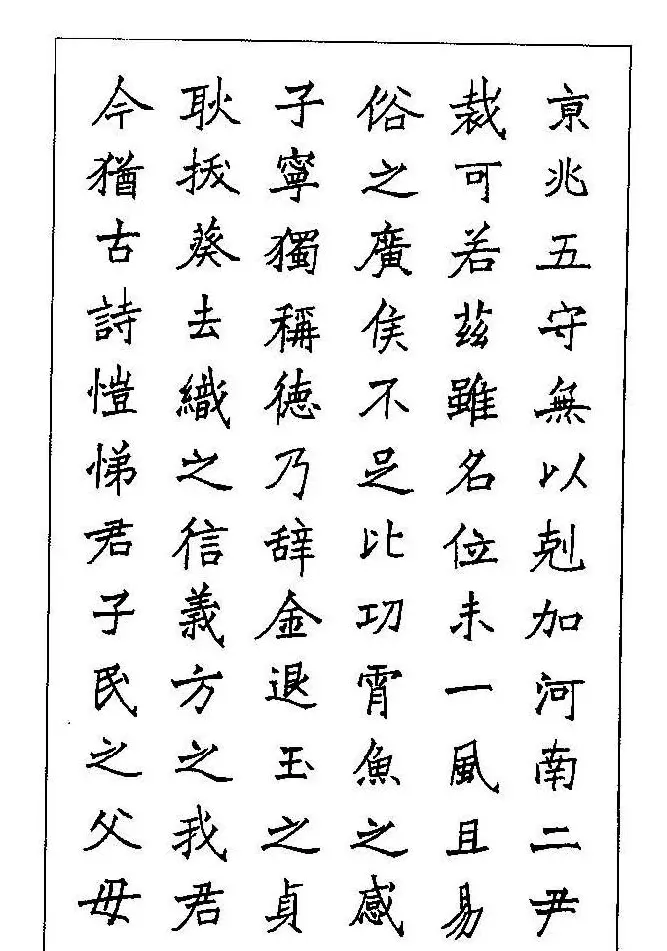 京兆五守無以剋加河南二尹
裁可若兹雖名位未一風且易
俗之廣侯不足比功霄魚之感
子寧獨稱德乃辞金退玉之貞
耿拔葵去織之信義方之我君
今猶古詩愷悌君子民之父母